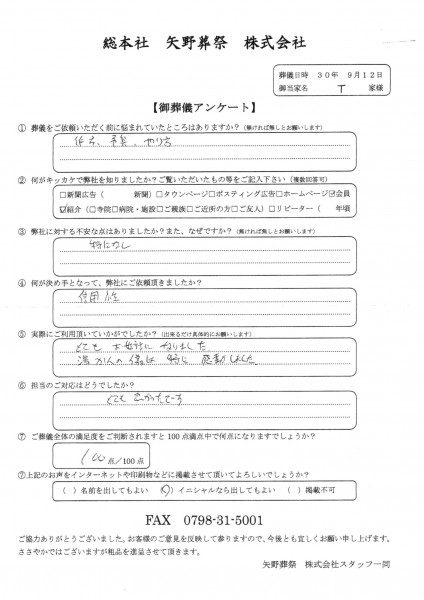 総本社　矢野葬祭　株式会社
葬儀日時　３０年　９月１２日
御当家名　T　家様
【御葬儀アンケート】
① 葬儀をご依頼いただく前に悩まれていたところはありますか？（無ければ無しとお願いします）
やり方
② 何がキッカケで弊社を知りましたか？ご覧いただいたもの等をご記入下さい（複数回答可）
□新聞広告（　　　新聞）□タウンページ□ポスティング広告□ホームページ☑会員
☑紹介（□寺院□病院・施設□ご親族□ご近所の方□ご友人）□リピーター（　　年頃
③ 弊社に対する不安な点はありましたか？また、なぜですか？（無ければ無しとお願いします）
特になし
④ 何が決め手となって、弊社にご依頼頂きましたか？
信用性
⑤ 実際にご利用頂いていかがでしたか？（出来るだけ具体的にお願いします）
とても お世話に なりました
湯かんの儀は 特に 感動しました
⑥ 担当のご対応はどうでしたか？
とても よかったで～す
⑦ ご葬儀全体の満足度をご判断されますと 100 点満点中で何点になりますでしょうか？
100点/100点
⑦上記のお声をインターネットや印刷物などに掲載させて頂いてよろしいでしょうか？
（　）名前を出してもよい　（○）イニシャルなら出してもよい　（　）掲載不可
FAX　0798-31-5001
ご協力ありがとうございました。お客様のご意見を反映して参りますので、今後とも宜しくお願い申し上げます。
ささやかではございますが粗品を進呈させて頂きます。
矢野葬祭　株式会社スタッフ一同